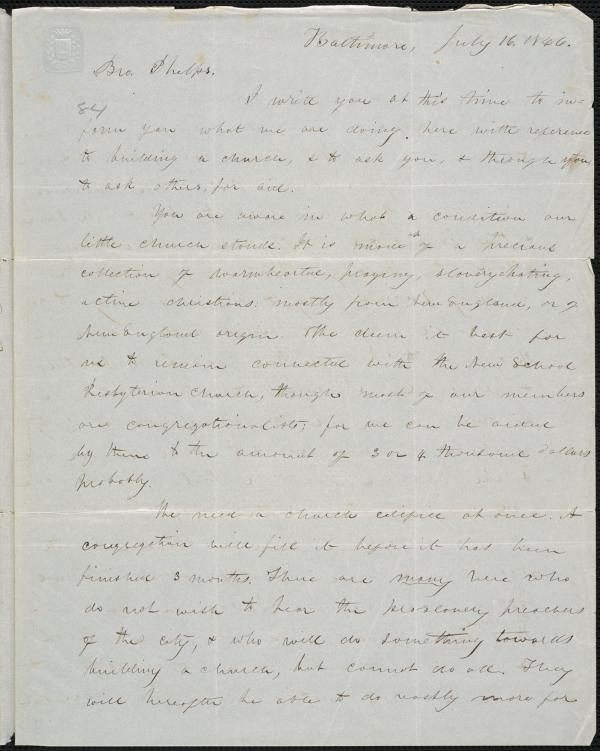 Baltimore, July 16. 1846.
Bro. Phelps.
84
I write you at this time to in=
form you what we are doing here with reference
to building a church, & to ask you, & through you
to ask others, for aid.
You are aware in what a condition our
little church stands. It is made up of a precious
collection of warmhearted, praying, slavery hating,
active christians: mostly from New England, or of
New England origin. We deem it best for
us to remain connected with the New School
Presbyterian Church, though most of our members
are congregationalists; for we can be aided
by them to the amount of 3 or 4 thousand dollars
probably.
We need a church edifice at once. A
congregation will fill it before it has been
finished 3 months. There are many here who
do not wish to hear the proslavery preachers
of the city, & who will do something towards
building a church, but cannot do all. They
will hereafter be able to do vastly more for